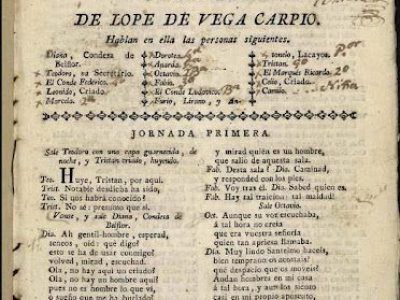 DE LOPE DE VEGA CARPIO.
Hablan en ella las personas siguientes.
Diana, Condesa de
Belflor.
Teodoro, su Secretario.
El Conde Federico.
Leonido, Criado.
Marcela.
Dorotea.
Anarda.
Octavio.
Fabio.
El Conde Ludovico.
Furio, Lirano, y
tonelo, Lacayos.
Tristan.
El Marqués Ricardo.
Celio, Criado.
Camilo.
JORNADA PRIMERA.
Sale Teodoro con una capa guarnecida, de
noche, y Tristan criado, huyendo.
Teo. Huye, Tristan, por aqui.
Trist. Notable desdicha ha sido,
Teo. Si nos habrá conocido?
Trist. No sé: presumo que sí.
Vanse, y sale Diana, Condesa de
Belflor.
Dia. Ah gentil-hombre, esperad,
teneos, oid: qué digo?
esto se ha de usar conmigo?
volved, mirad, escuchad.
Ola, no hay aqui un criado?
Ola, no hay un hombre aqui?
pues no es hombre lo que ví,
o sueño que me ha burlado.
y mirad quién es un hombre,
que salió de aquesta sala.
Fab. Desta sala? Dia. Caminad,
y responded con los pies.
Fab. Voy tras él. Dia. Sabed quien es.
Fab. Hay tal traicion, tal maldad!
Sale Octavio.
Oct. Aunque su voz escuchaba,
á tal hora no creía
que era vuestra señoría
quien tan apriesa llamaba.
Dia. Muy lindo Santelmo haceis,
bien temprano os acostais!
qué despacio que os moveis!
Andan hombres en mi casa
á tal hora, y aun los siento
casi en mi propio aposento,